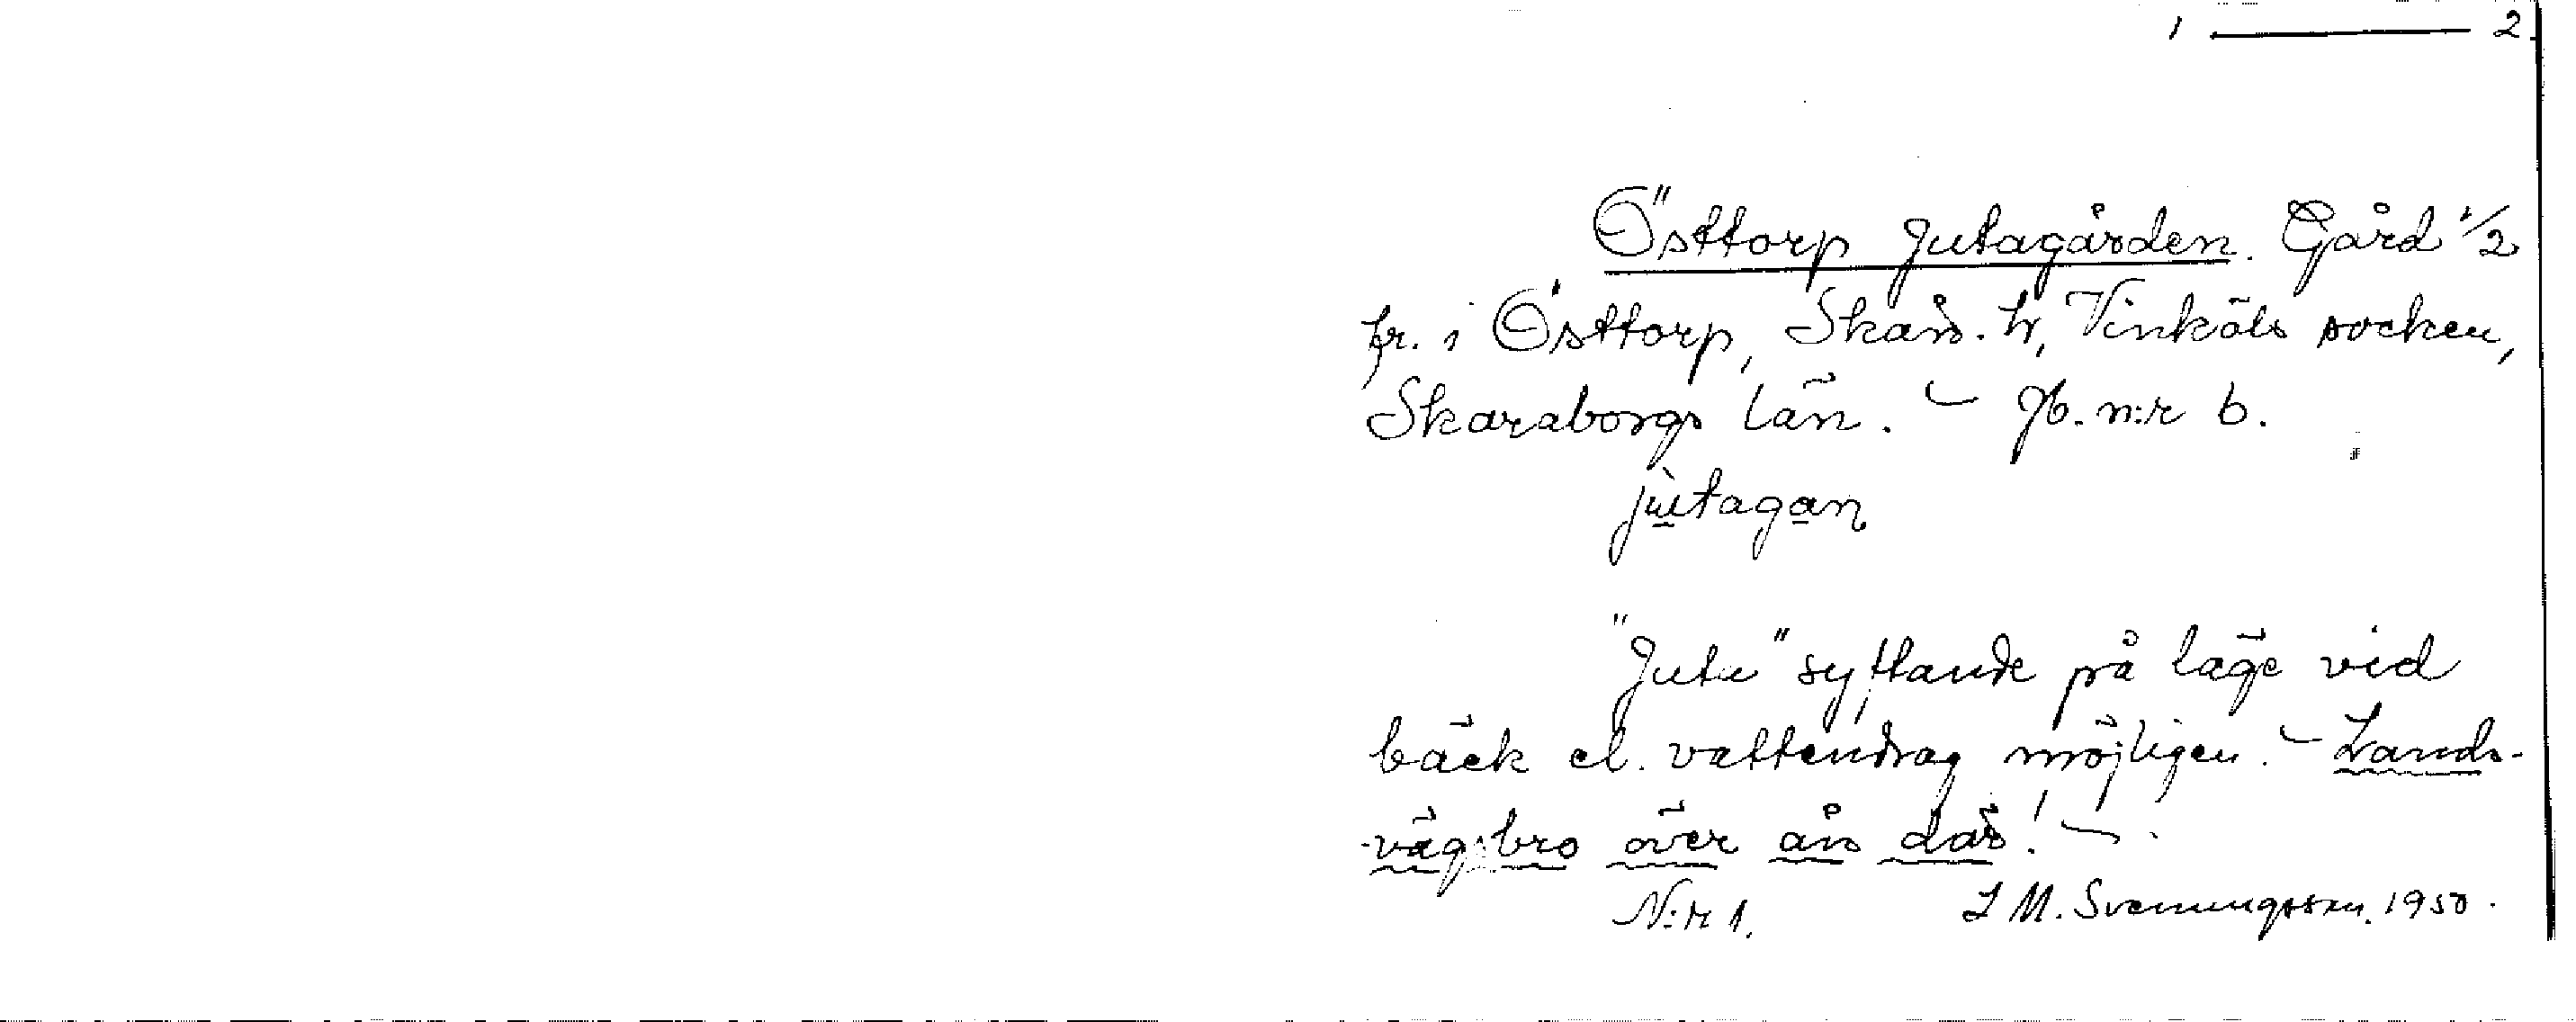 1 — 2.
Östtorp Jutagården. Gård 1/2
fr. i Östtorp, Skån. hr, Vinköls socken,
Skaraborgs län. – Jb. n:r 6.
jùtagan
"Juta" syftande på läge vid
bäck el. vattendrag möjligen. – Lands-
-vägsbro över ån där! –.
N:r 1. I M. Svenungsson. 1950.